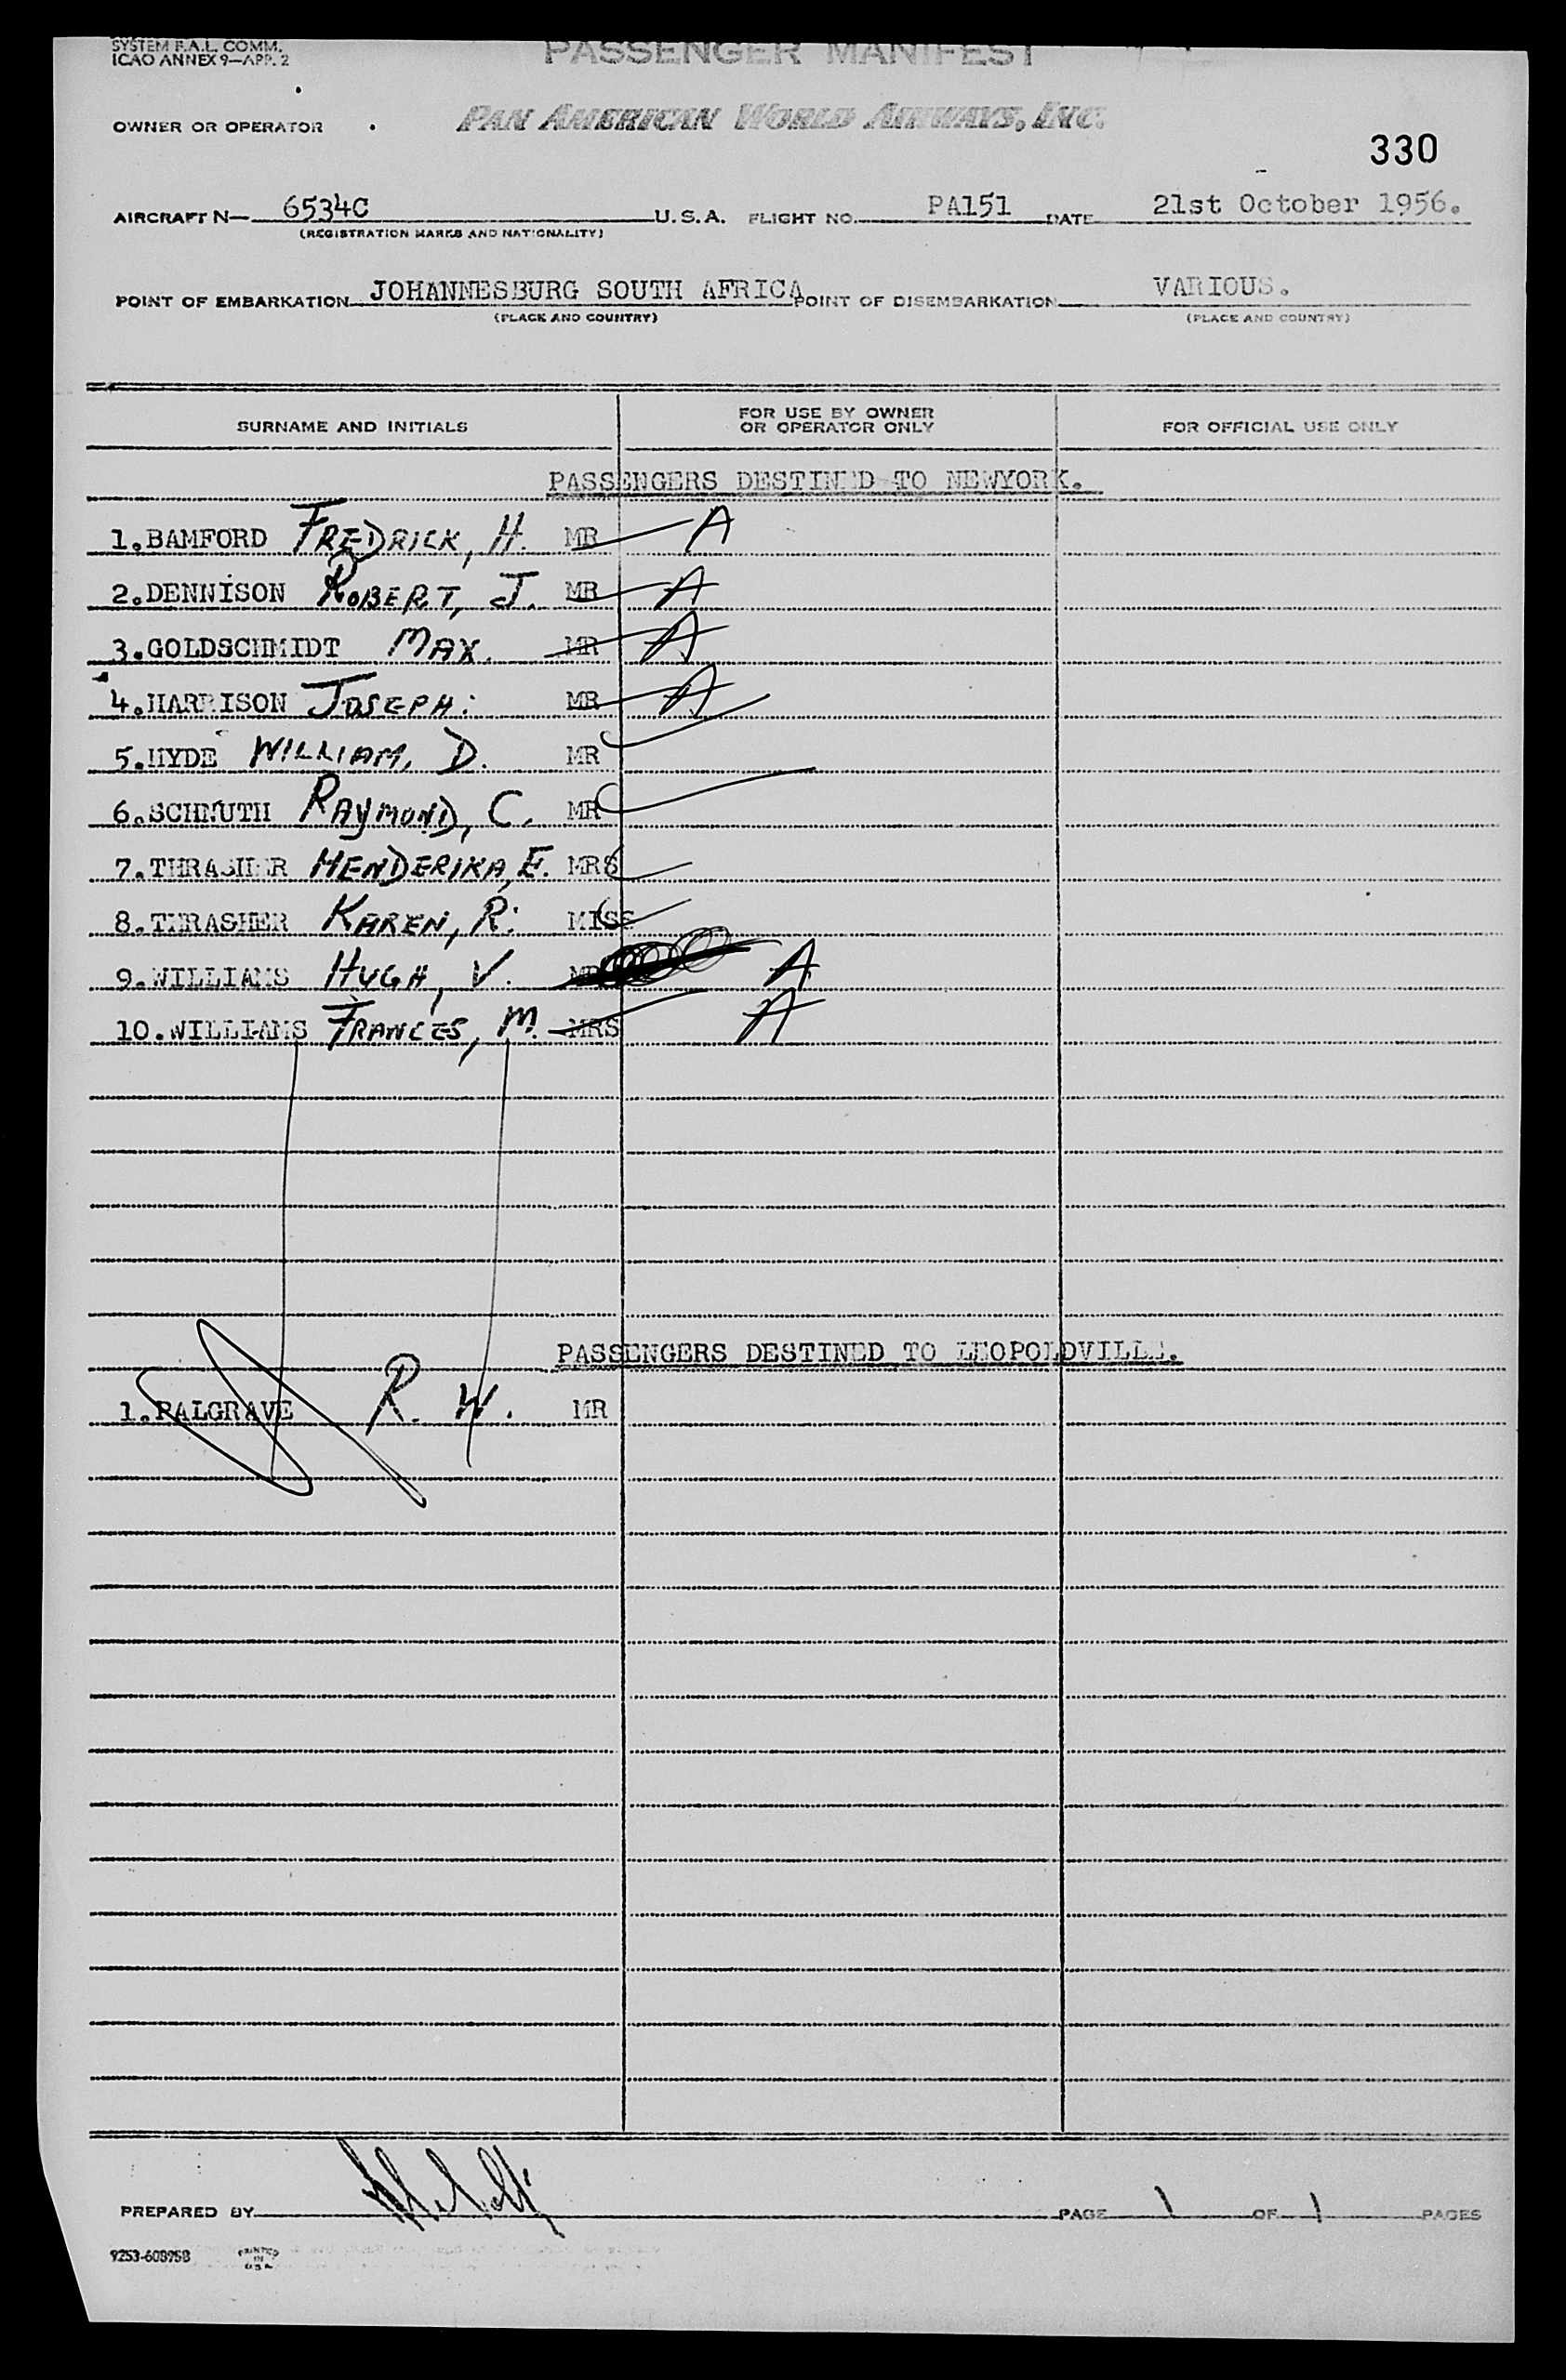 SYSTEM F.A.L. COMM.
ICAO ANNEX 9—APP. 2
PASSENGER MANIFEST
OWNER OR OPERATOR PAN AMERICAN WORLD AIRWAYS, INC.
330
AIRCRAFT N— 6534C U.S.A. FLIGHT NO. PA151 DATE 21st October 1956.
(REGISTRATION MARKS AND NATIONALITY)
POINT OF EMBARKATION JOHANNESBURG SOUTH AFRICA POINT OF DISEMBARKATION VARIOUS.
(PLACE AND COUNTRY) (PLACE AND COUNTRY)
SURNAME AND INITIALS FOR USE BY OWNER OR OPERATOR ONLY FOR OFFICIAL USE ONLY
PASSENGERS DESTINED TO NEWYORK.
1.BAMFORD FREDRICK, H. MR A
2.DENNISON ROBERT, J. MR A
3.GOLDSCHMIDT MAX. MR A
4.HARRISON JOSEPH: MR A
5.HYDE WILLIAM, D. MR
6.SCHMUTH RAYMOND, C. MR
7.THRASHER HENDERIKA, E. MRS
8.THRASHER KAREN, R: MISS
9.WILLIAMS HUGH, V. MR A
10.WILLIAMS FRANCES, M. MRS A
PASSENGERS DESTINED TO LEOPOLDVILLE.
1.PALGRAVE R. W. MR
PREPARED BY PAGE 1 OF 1 PAGES
9253-608958 PRINTED IN U.S.A.